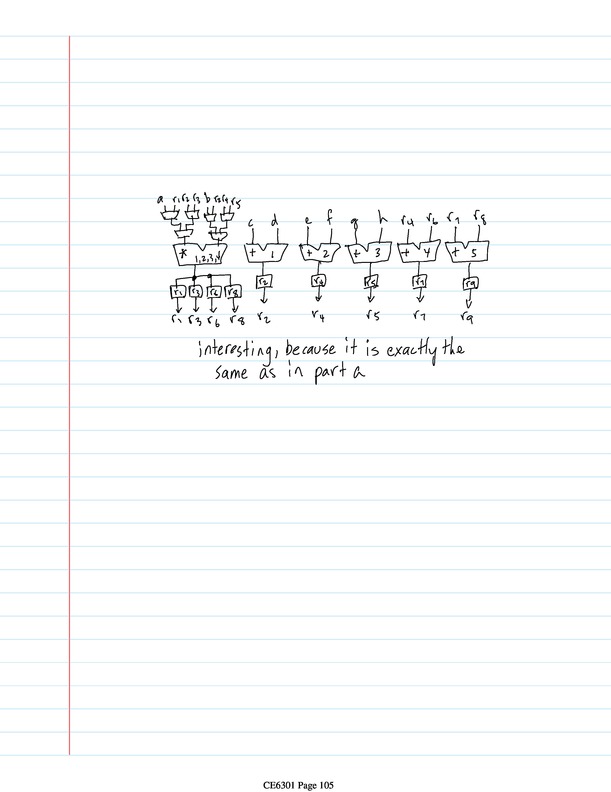 a r1 r2 r3 b r3 r4 r5
c d e f g h r4 r6 r7 r8
* 1,2,3,4 + 1 + 2 + 3 + 4 + 5
r1 r3 r6 r8 r2 r4 r5 r7 r9
r1 r3 r6 r8 r2 r4 r5 r7 r9
interesting, because it is exactly the
same as in part a
CE6301 Page 105